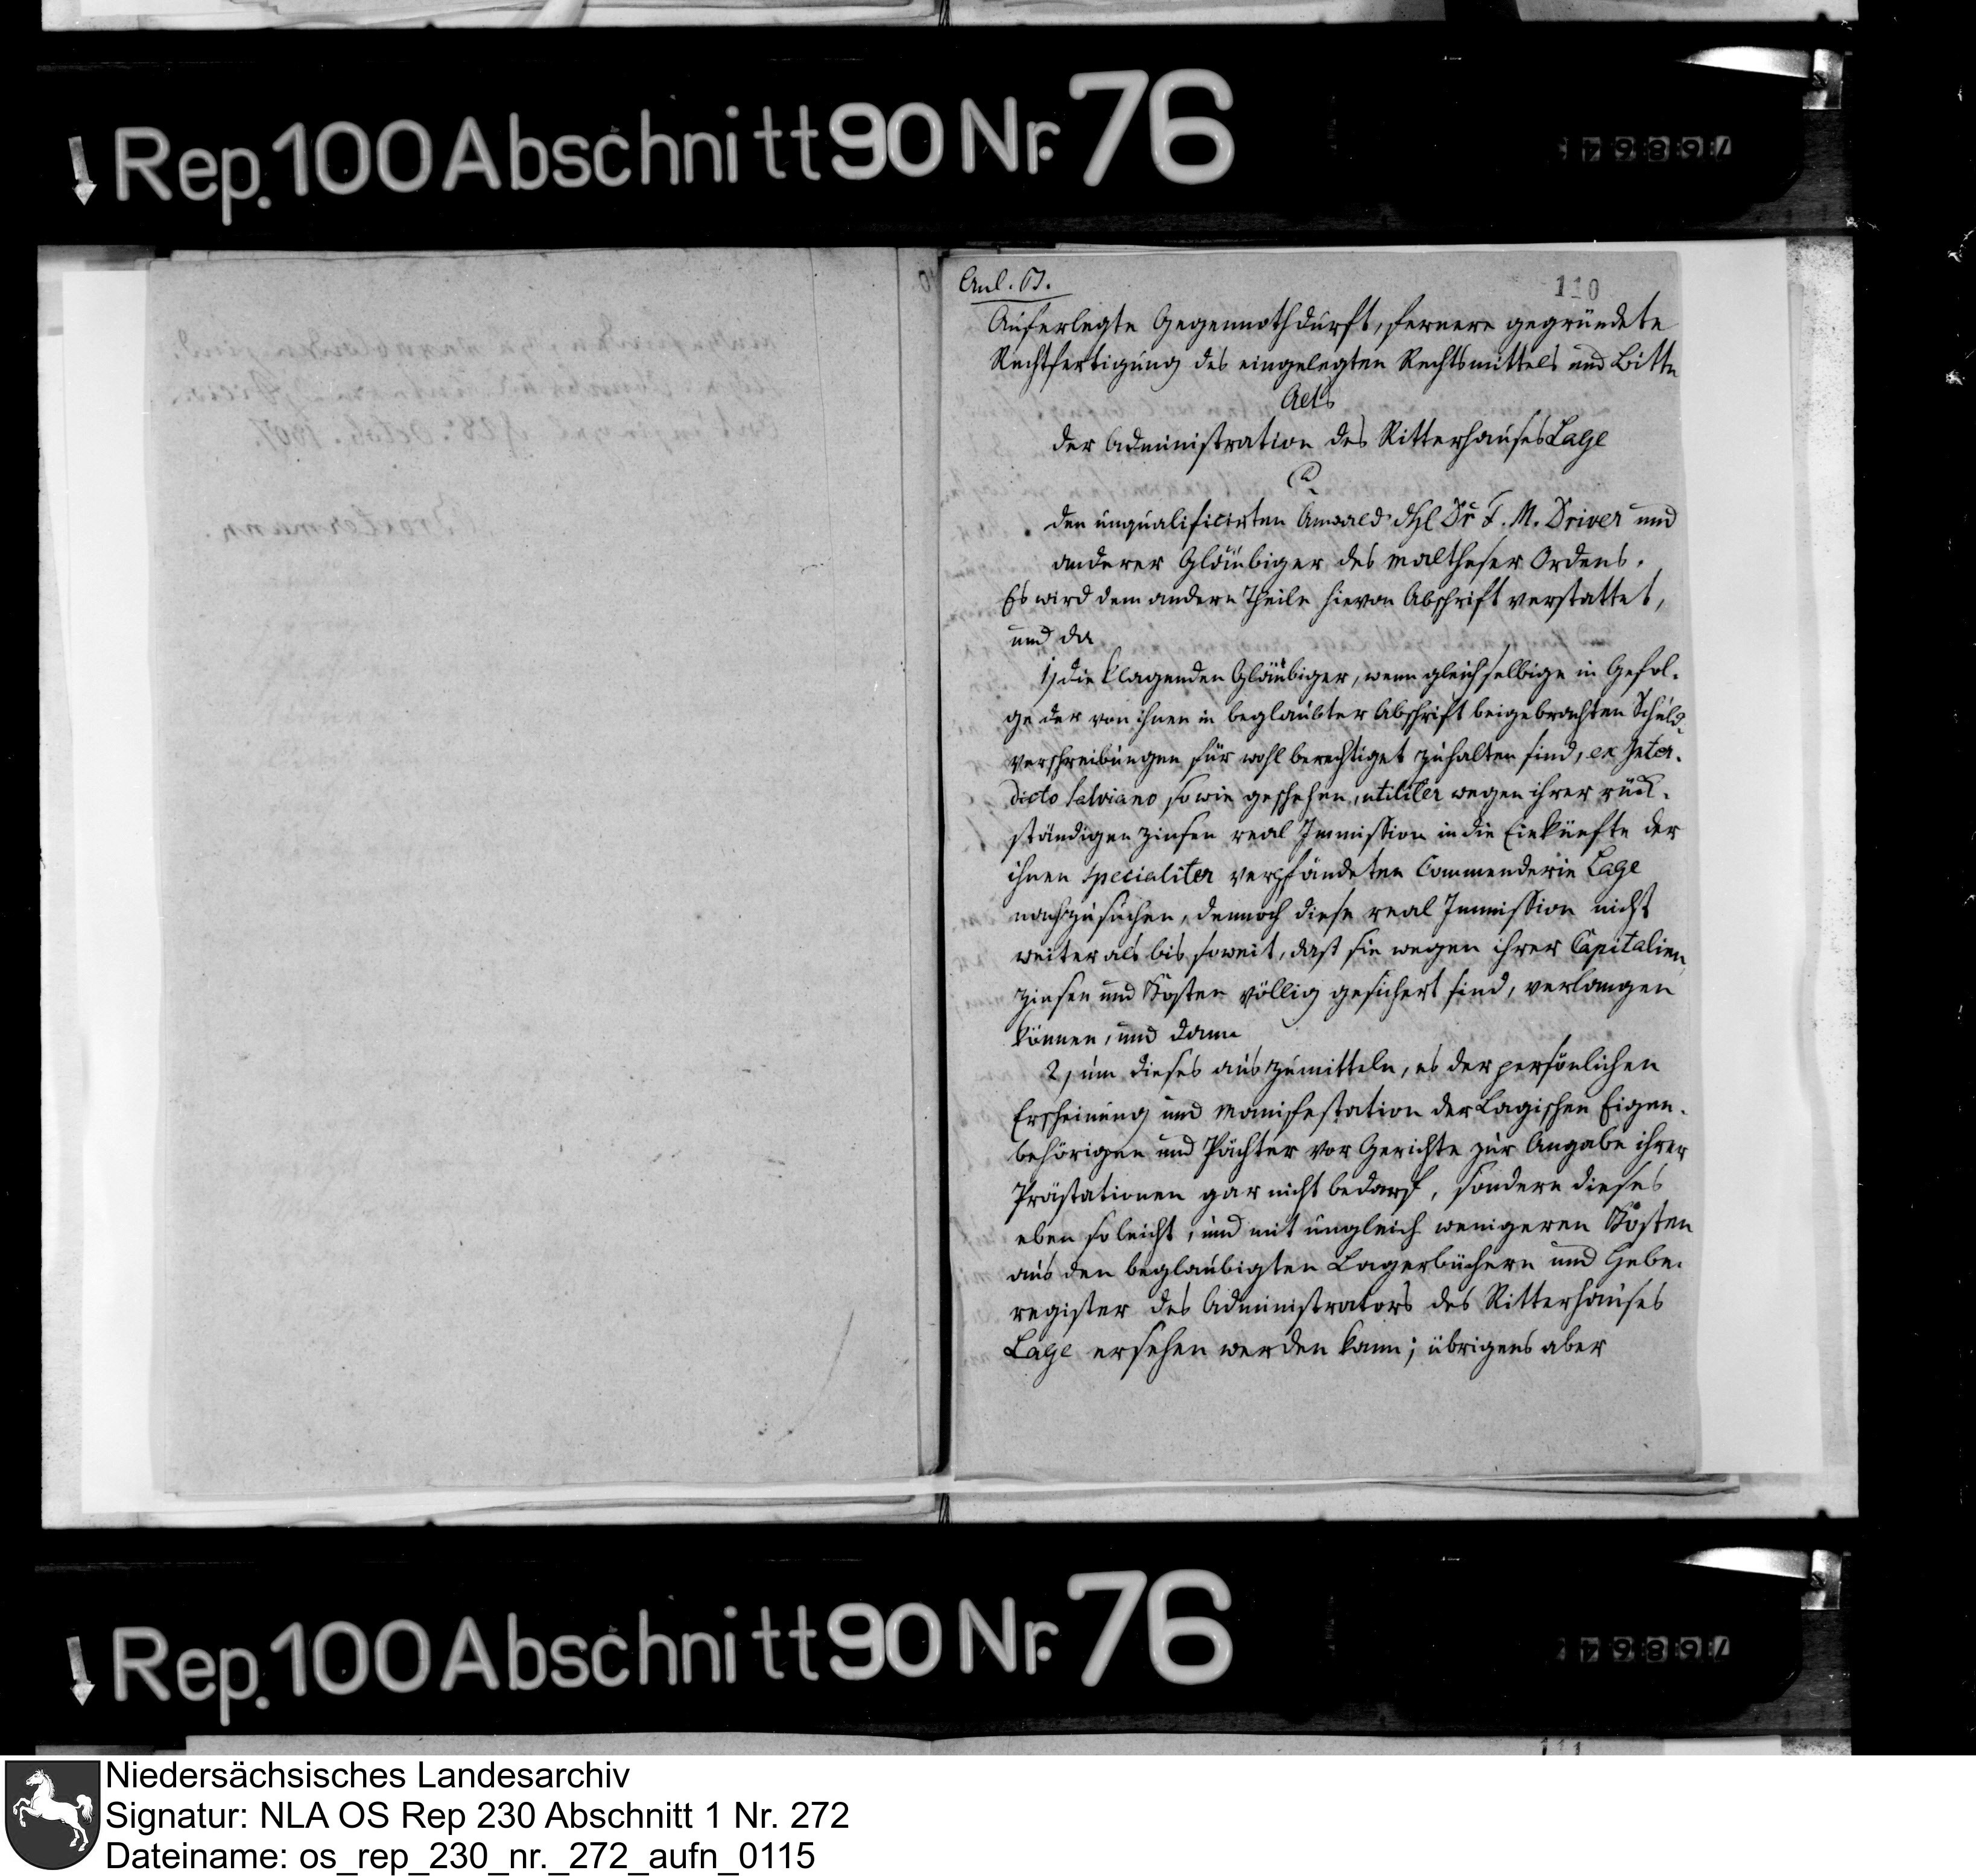 Rep. 100 Abschnitt 90 Nr. 76
Anl. B.
110
Auferlegte Gegennothdurft, fernere gegründete
Rechtfertigung des eingelegten Rechtsmittels und Bitte
der Administration des Ritterhauses Lage
C.
den unqualificirten Anwald Dr. F. M. Driver und
anderer Gläubiger des Maltheser Ordens.
Es wird dem andern Theile hievon Abschrift verstattet,
und da
1) die klagenden Gläubiger, wenn gleich selbige in Gefol-
ge der von ihnen in beglaubter Abschrift beigebrachten Schuld-
verschreibungen für wohl berechtiget zuhalten sind, ex Inter-
dicto Salviano sowie geschehen, utiliter wegen ihrer rück-
ständigen Zinsen real Immission in die Einkünfte der
ihnen specialiter verpfändeten Commenderie Lage
nachzusuchen, dennoch diese real Immission nicht
weiter als bis soweit, dast sie wegen ihrer Capitalien,
Zinsen und Kosten völlig gesichert sind, verlangen
können, und dann
2) um dieses auszumitteln, es der persönlichen
Erscheinung und Manifestation der Lagischen Eigen-
behörigen und Pächter vor Gerichte zur Angabe ihrer
Prästationen gar nicht bedarf, sondern dieses
eben so leicht, und mit ungleich wenigeren Kosten
aus den beglaubigten Lagerbüchern und Hebe-
register des Administrators des Ritterhauses
Lage ersehen werden kann; übrigens aber
Rep. 100 Abschnitt 90 Nr. 76
111
Niedersächsisches Landesarchiv
Signatur: NLA OS Rep 230 Abschnitt 1 Nr. 272
Dateiname: os_rep_230_nr._272_aufn_0115